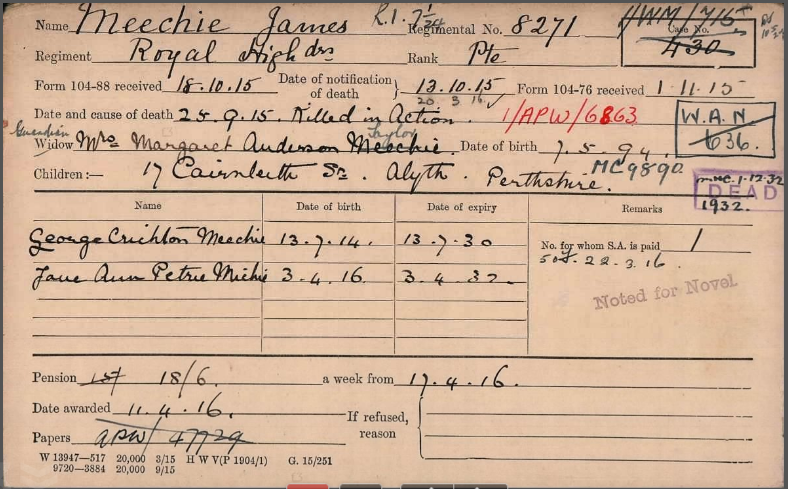 Name Meechie James R.1. 7/24 Regimental No. 8271 1/WM/715
Case No. 430
Regiment Royal Highdrs Rank Pte
Form 104-88 received 18.10.15 Date of notification of death } 13.10.15 Form 104-76 received 1.11.15
20 3 16
Date and cause of death 25.9.15. Killed in Action. 1/APW/6863 W.A.N. 636.
Guardian Taylor
Widow Mrs Margaret Anderson Meechie. Date of birth 7.5.94.
Children:— 17 Cairnleith St. Alyth. Perthshire. MC9890
MC.1.12.32
DEAD
1932.
Name Date of birth Date of expiry Remarks
George Crichton Meechie 13.7.14. 13.7.30 No. for whom S.A. is paid 1
22.3.16.
Jane Ann Petrie Michie 3.4.16. 3.4.32.
Noted for Novel
Pension 1st 18/6. a week from 17.4.16.
Date awarded 11.4.16. If refused, reason
Papers APW/47729
W 13947—517 20,000 3/15 H W V(P 1904/1) G. 15/251
9720—3884 20,000 9/15